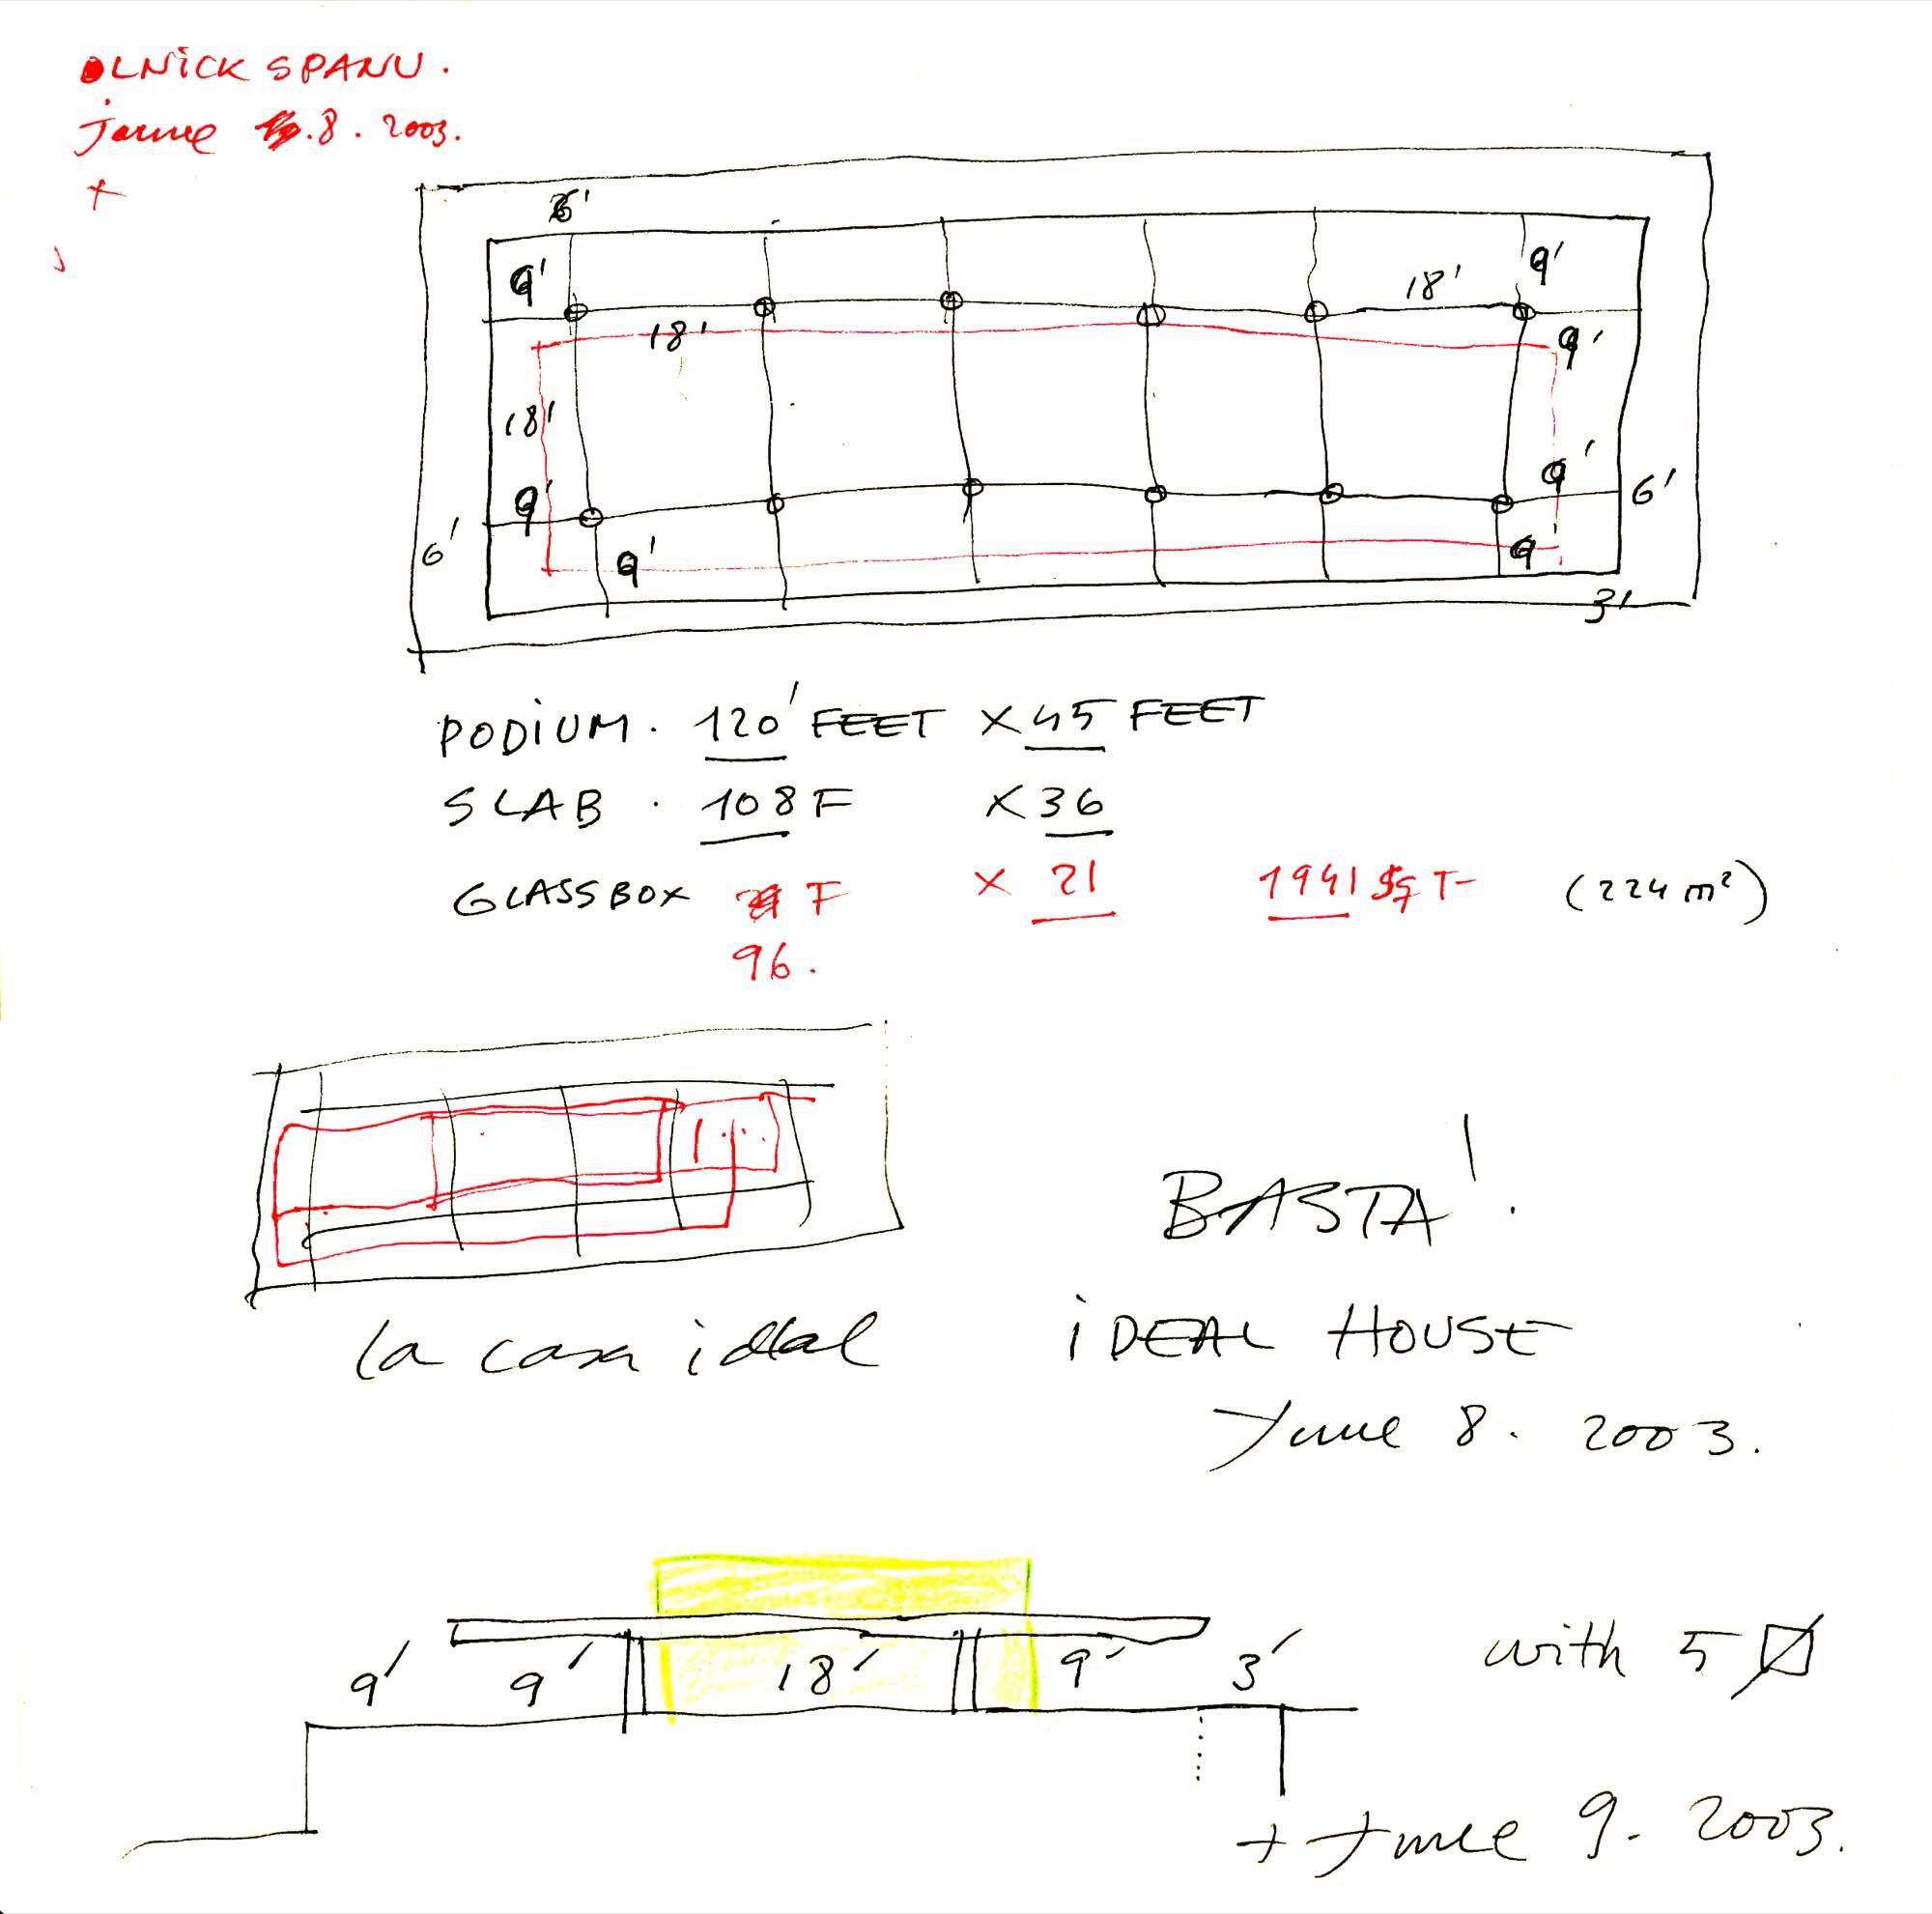 OLNiCK SPANU.
June 8. 2003.
6'
9' 18' 9'
18' 9'
18'
9' 9' 6'
6' 9' 9
3'
PODiUM. 120' FEET X 45 FEET
SLAB . 108 F X 36
GLASSBOX F X 21 1941 SqT (224 m²)
96.
BASTA!
la casa ideal iDEAL HOUSE
June 8. 2003.
9' 9' 18' 9' 3' with 5
+ June 9. 2003.